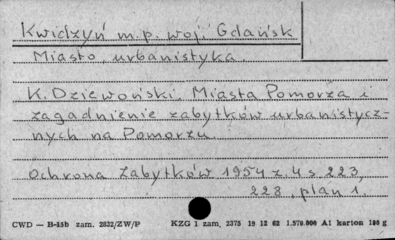 Kwidzyń m.p. woj. Gdańsk
Miasto, urbanistyka.
K. Dziewoński. Miasta Pomorza i
zagadnienie zabytków urbanistycz-
nych na Pomorzu.
Ochrona Zabytków 1954 z 4 s 223,
228, plan 1.
CWD — B-15b zam. 2822/ZW/P KZG 1 zam. 2375 19 12 62 1.570.000 A1 karton 180 g